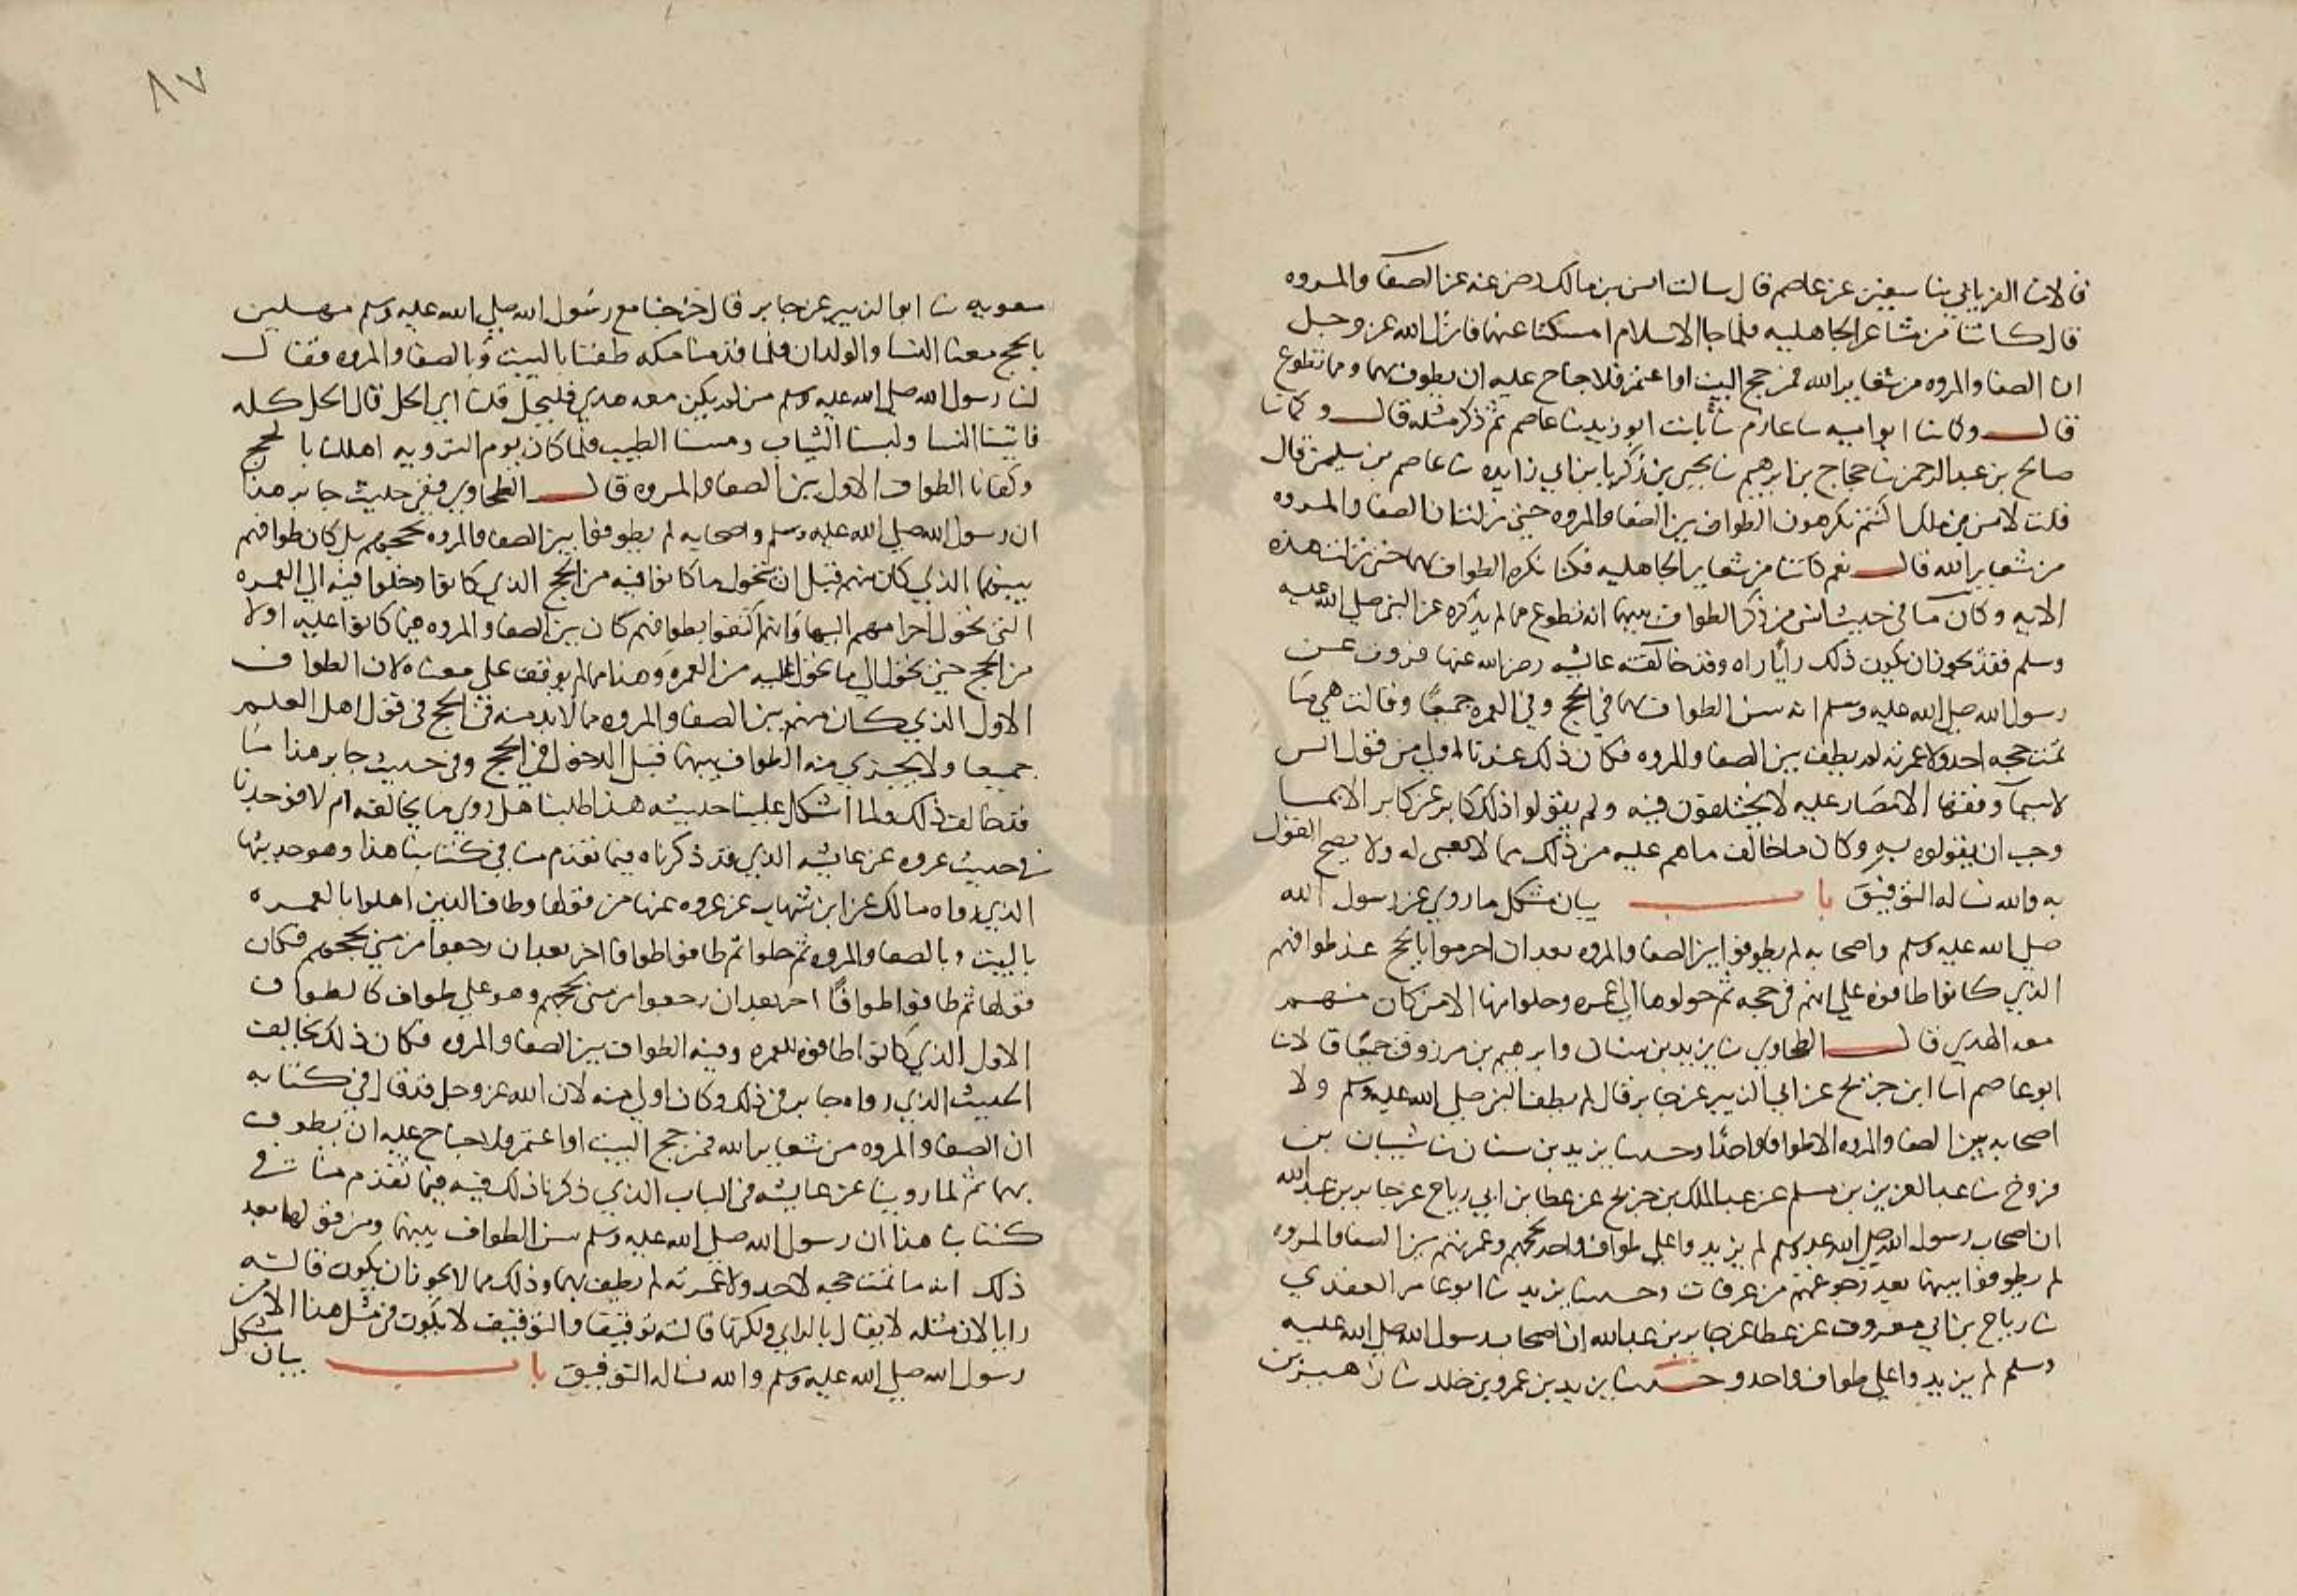 قالا ثنا الفريابي ثنا سفين عن عاصم قال سالت انس بن مالك رضى عنه عن الصفا والمروه
قال كانتا من مشاعر الجاهليه فلما جا الاسلام امسكنا عنهما فانزل الله عز وجل
ان الصفا والمروه من شعاير الله فمن حج البيت او اعتمر فلا جناح عليه ان يطوف بهما ومن تطوع
قال وكما ثنا ابو اميه ثنا عارم ثنا ثابت ابو زيد ثنا عاصم ثم ذكر مثله قال وكما ثنا
صالح بن عبد الرحمن ثنا حجاج بن ابرهيم ثنا يحيى بن زكريا بن ابي زايده ثنا عاصم بن سليمن قال
قلت لانس بن ملك اكنتم تكرهون الطواف بين الصفا والمروه حتى نزلت ان الصفا والمروه
من شعاير الله قال نعم كانتا من شعاير الجاهليه فكنا نكره الطواف بهما حتى نزلت هذه
الايه وكان ما في حديث انس من ذكر الطواف بينهما انه تطوع مما لم يذكره عن النبي صلى الله عليه
وسلم فقد يجوز ان يكون ذلك رأيا راه وقد خالفته عايشه رضى الله عنها فروت عن
رسول الله صلى الله عليه وسلم انه سن الطواف بهما في الحج وفي العمره جميعا وقالت هي ما
تمت حجه احد ولا عمرته لم يطف بين الصفا والمروه فكان ذلك عندنا اولى من قول انس
لاسيما وفقها الامصار عليه لا يختلفون فيه ولم يقولوا ذلك كابر عن كابر الا بما
وجب ان يقولوه به وكان ما خالف ما هم عليه من ذلك مما لا معنى له ولا يصح القول
به والله نساله التوفيق باب بيان مشكل ما روي عن رسول الله
صلى الله عليه وسلم واصحابه لم يطوفوا بين الصفا والمروه بعد ان احرموا بالحج عند طوافهم
الذي كانوا طافوه على انهم في حجه ثم حولوها الى عمره وحلوا منها الا من كان منهم
معه الهدي قال الطحاوي ثنا يزيد بن سنان وابرهيم بن مرزوق جميعا قالا ثنا
ابو عاصم انا ابن جريج عن ابي الزبير عن جابر قال لم يطف النبي صلى الله عليه وسلم ولا
اصحابه بين الصفا والمروه الا طوافا واحدا وحدثنا يزيد بن سنان ثنا شيبان بن
فروخ ثنا عبد العزيز بن مسلم عن عبد الملك بن جريج عن عطا بن ابي رباح عن جابر بن عبد الله
ان اصحاب رسول الله صلى الله عليه وسلم لم يزيدوا على طواف واحد لحجهم وعمرتهم بين الصفا والمروه
لم يطوفوا بينهما بعد رجوعهم من عرفات وحدثنا يزيد ثنا ابو عامر العقدي
ثنا رباح بن ابي معروف عن عطا عن جابر بن عبد الله ان اصحاب رسول الله صلى الله عليه
وسلم لم يزيدوا على طواف واحد وحدثنا يزيد بن عمرو بن خلد ثنا زهير بن
٨٧
معويه ثنا ابو الزبير عن جابر قال خرجنا مع رسول الله صلى الله عليه وسلم مهلين
بالحج معنا النسا والولدان فلما قدمنا مكه طفنا بالبيت وبالصفا والمروه فقال
لنا رسول الله صلى الله عليه وسلم من لم يكن معه هدي فليحل قلنا اي الحل قال الحل كله
فاتينا النسا ولبسنا الثياب ومسسنا الطيب فلما كان يوم الترويه اهللنا بالحج
وكفانا الطواف الاول بين الصفا والمروه قال الطحاوي ففي حديث جابر هذا
ان رسول الله صلى الله عليه وسلم واصحابه لم يطوفوا بين الصفا والمروه لحجهم بل كان طوافهم
بينهما الذي كان منهم قبل ان يتحول ما كانوا فيه من الحج الذي كانوا دخلوا فيه الى العمره
التي تحول احرامهم اليها وانهم اكتفوا بطوافهم كان بين الصفا والمروه فيما كانوا عليه اولا
من الحج حين تحول الى ما تحول اليه من العمره وهذا مما لم يوقف على معناه لان الطواف
الاول الذي كان منهم بين الصفا والمروه مما لا بد منه في الحج في قول اهل العلم
جميعا ولا يجزي منه الطواف بينهما قبل الدخول في الحج وفي حديث جابر هذا ما
قد خالف ذلك ولما اشكل علينا حديثه هذا طلبنا هل روي ما يخالفه ام لا فوجدنا
في حديث عروه عن عايشه الذي قد ذكرناه فيما تقدم منا في كتابنا هذا وهو حديثها
الذي رواه مالك عن ابن شهاب عن عروه عنها من قولها وطاف الذين اهلوا بالعمره
بالبيت وبالصفا والمروه ثم حلوا ثم طافوا طوافا اخر بعد ان رجعوا من منى لحجهم فكان
قولها ثم طافوا طوافا اخر بعد ان رجعوا من منى لحجهم وهو على طواف كالطواف
الاول الذي كانوا طافوه للعمره وفيه الطواف بين الصفا والمروه فكان ذلك يخالف
الحديث الذي رواه جابر في ذلك وكان اولى منه لان الله عز وجل قد قال في كتابه
ان الصفا والمروه من شعاير الله فمن حج البيت او اعتمر فلا جناح عليه ان يطوف
بهما ثم لما روينا عن عايشه في الباب الذي ذكرنا ذلك فيه فيما تقدم منا في
كتابنا هذا ان رسول الله صلى الله عليه وسلم سن الطواف بينهما ومن قولها بعد
ذلك انه ما تمت حجه لاحد ولا عمرته لم يطف بهما وذلك مما لا يجوز ان يكون قالته
رايا لان مثله لا يقال بالراي ولكنها قالته توقيفا والتوقيف لا يكون في مثل هذا الا من
رسول الله صلى الله عليه وسلم والله نساله التوفيق باب بيان مشكل